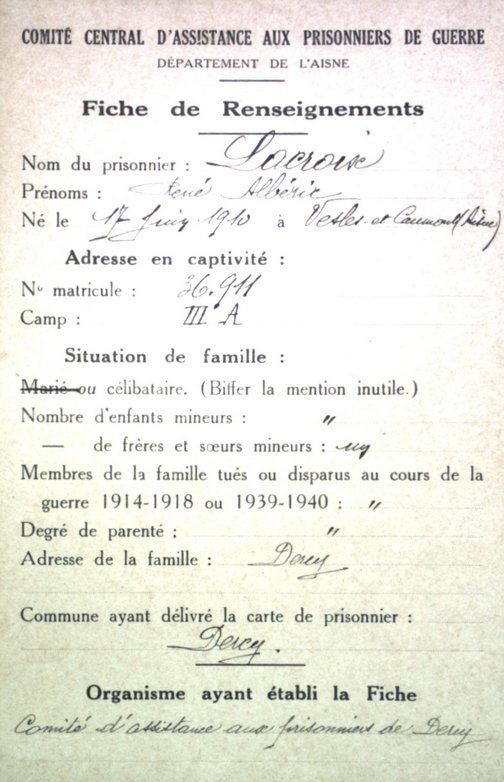 COMITÉ CENTRAL D'ASSISTANCE AUX PRISONNIERS DE GUERRE
DÉPARTEMENT DE L'AISNE
Fiche de Renseignements
Nom du prisonnier : Lacroix
Prénoms : René Albéric
Né le 17 Juin 1910 à Vesles-et-Caumont (Aisne)
Adresse en captivité :
No matricule : 36.911
Camp : III A
Situation de famille :
Marié ou célibataire. (Biffer la mention inutile.)
Nombre d'enfants mineurs : "
— de frères et sœurs mineurs : un
Membres de la famille tués ou disparus au cours de la
guerre 1914-1918 ou 1939-1940 : "
Degré de parenté : "
Adresse de la famille : Dercy
Commune ayant délivré la carte de prisonnier :
Dercy.
Organisme ayant établi la Fiche
Comité d'assistance aux prisonniers de Dercy